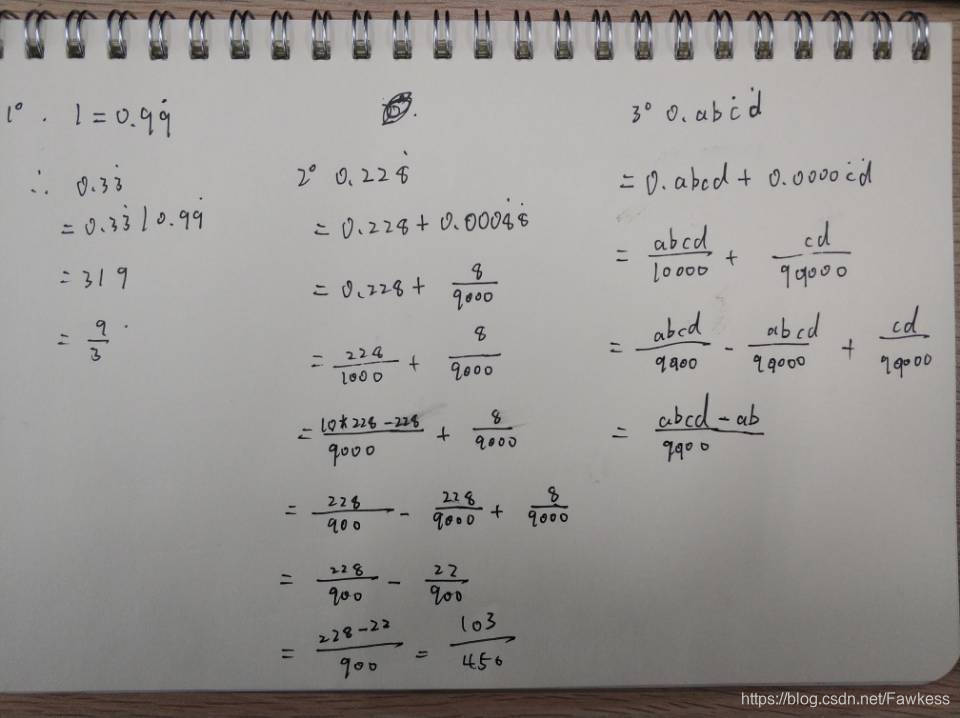 1° . 1 = 0.99̇
∴ 0.33̇
= 0.33̇ / 0.99̇
= 3 / 9
= 9/3 .
2° 0.228̇
= 0.228 + 0.0008̇8̇
= 0.228 + 8/9000
= 228/1000 + 8/9000
= 10*228-228/9000 + 8/9000
= 228/900 - 228/9000 + 8/9000
= 228/900 - 22/900
= 228-22/900 = 103/450
3° 0.abċḋ
= 0.abcd + 0.0000ċḋ
= abcd/10000 + cd/990000
= abcd/9900 - abcd/990000 + cd/990000
= abcd - ab/9900
https://blog.csdn.net/Fawkess